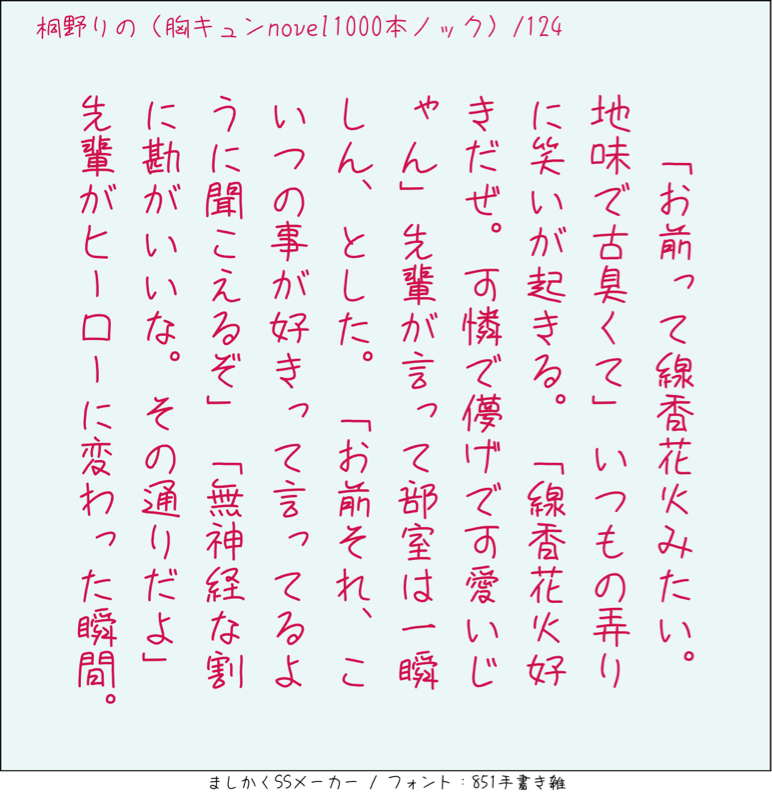 桐野りの（胸キュンnovel1000本ノック）/124
「お前って線香花火みたい。
地味で古臭くて」いつもの弄り
に笑いが起きる。「線香花火好
きだぜ。可憐で儚げで可愛いじ
ゃん」先輩が言って部室は一瞬
しん、とした。「お前それ、こ
いつの事が好きって言ってるよ
うに聞こえるぞ」「無神経な割
に勘がいいな。その通りだよ」
先輩がヒーローに変わった瞬間。
ましかくSSメーカー / フォント：851手書き雑